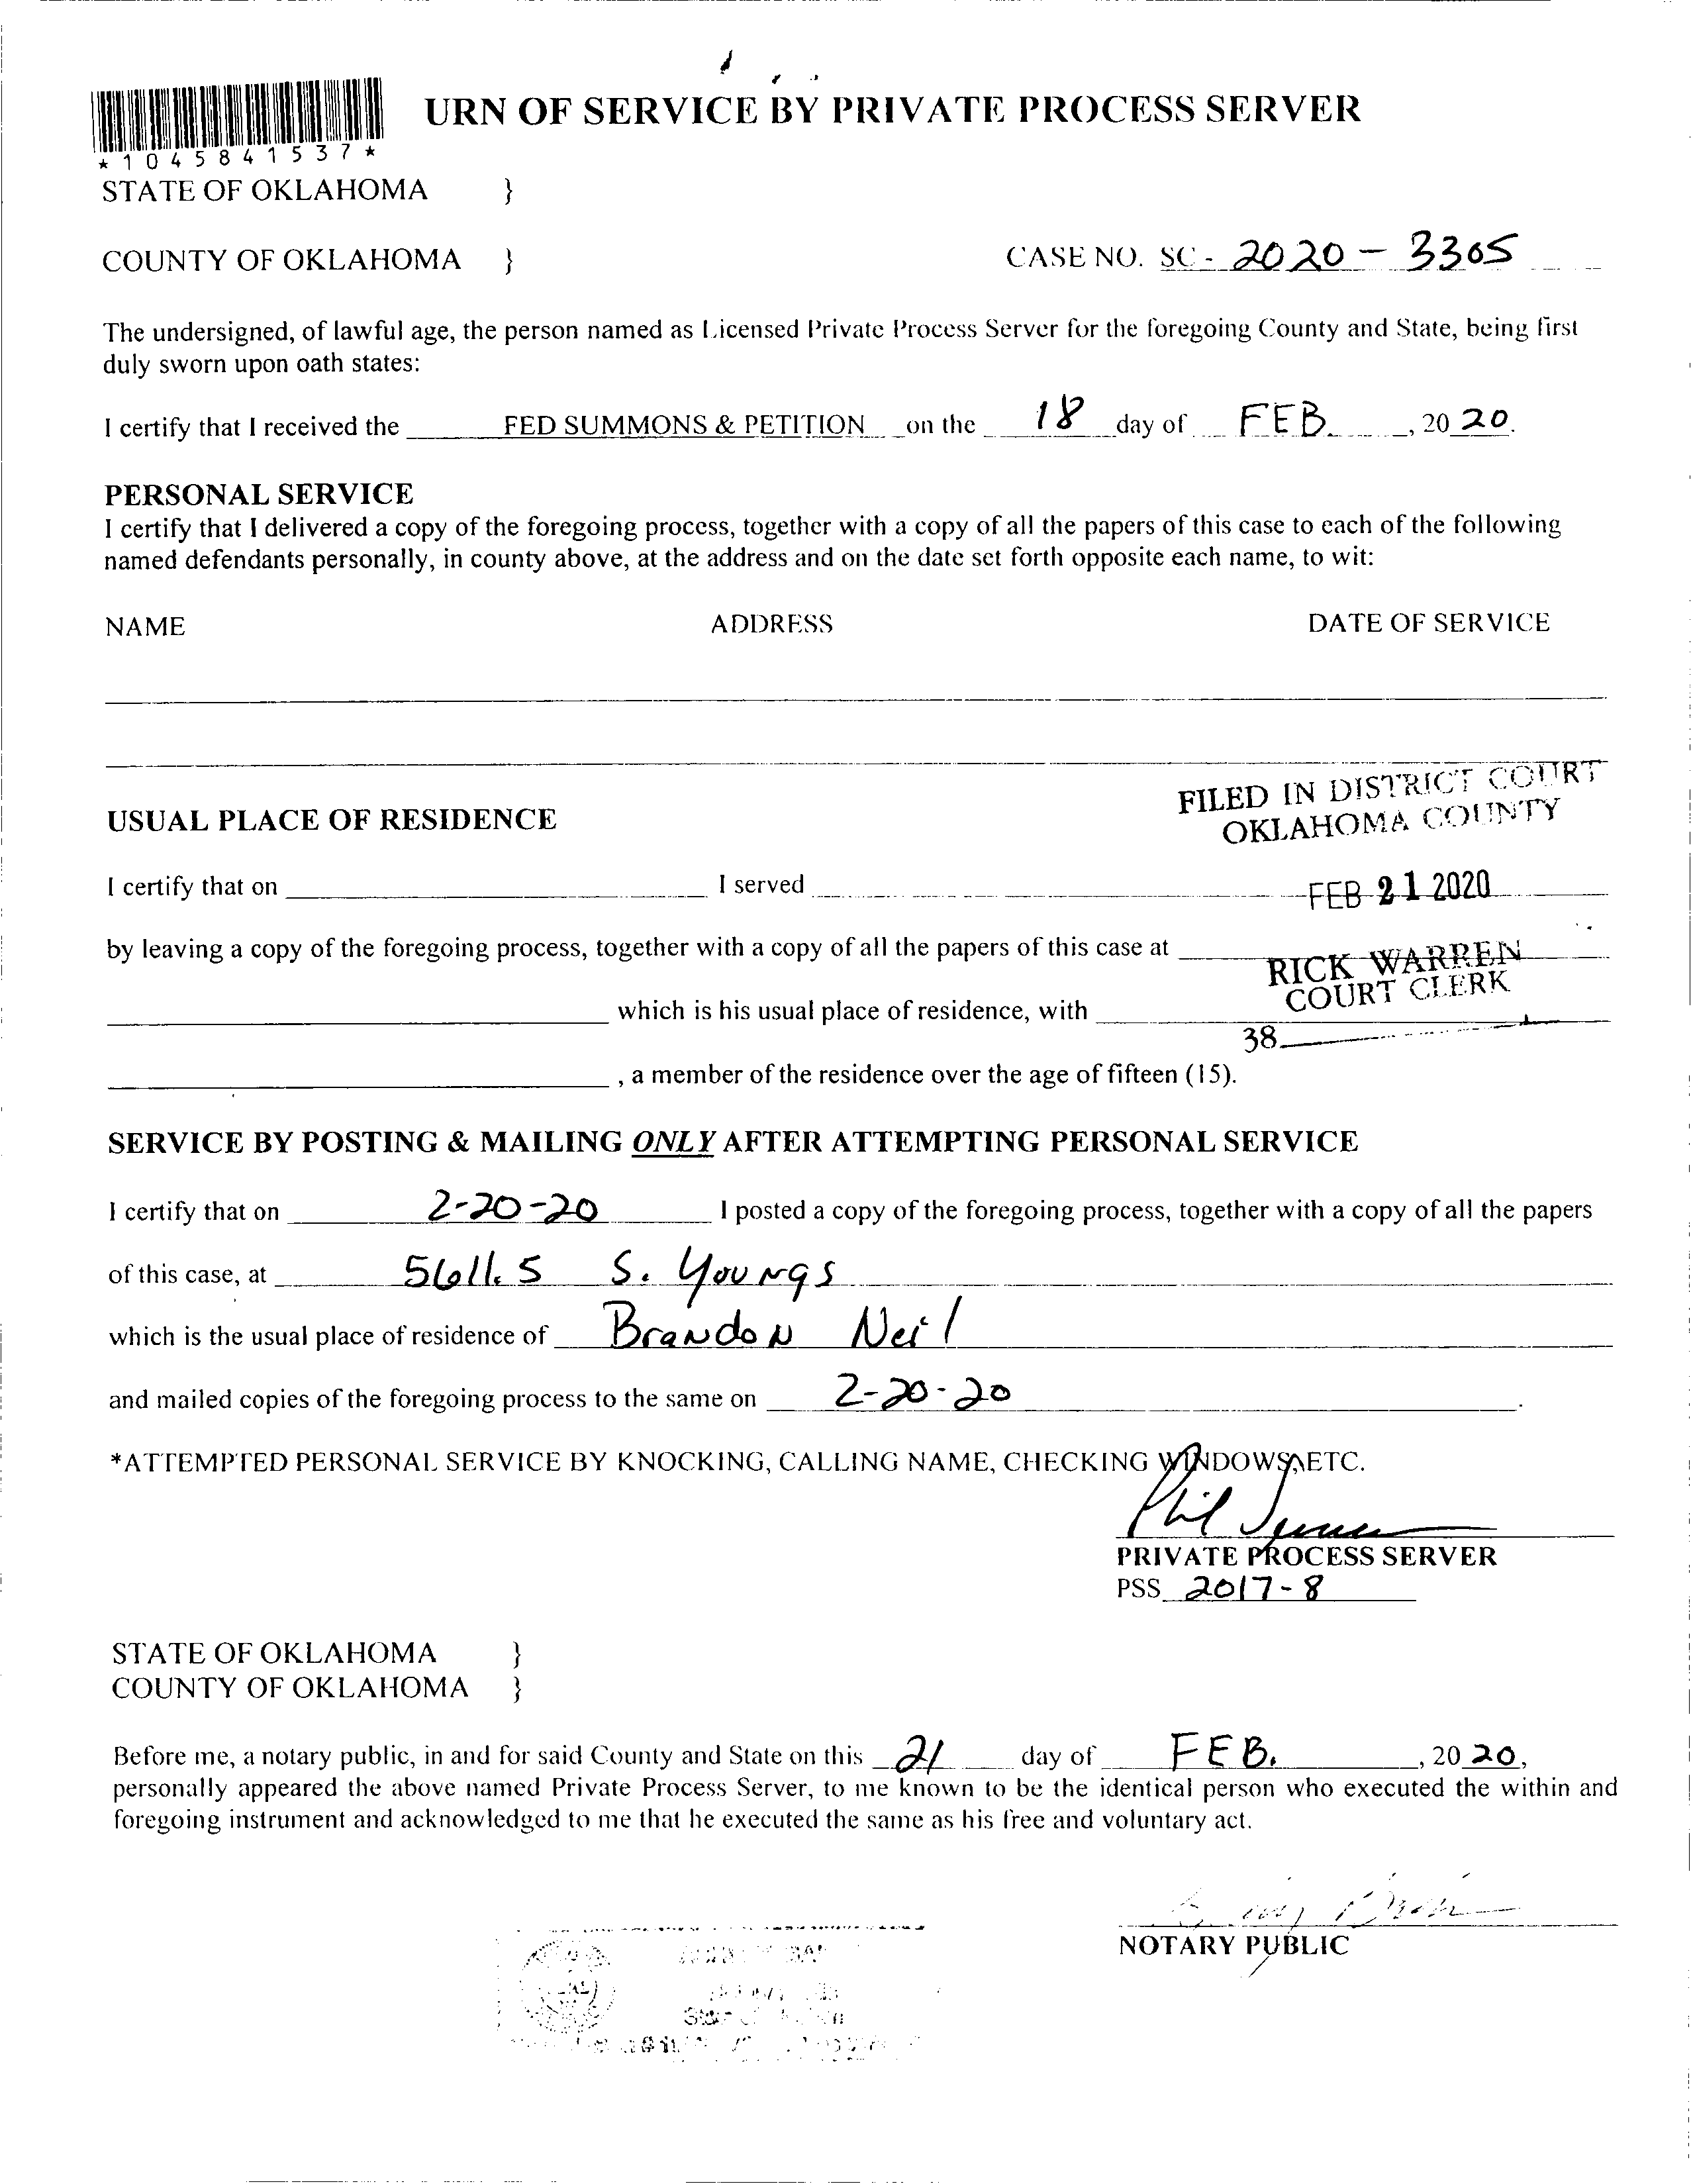 URN OF SERVICE BY PRIVATE PROCESS SERVER
*1045841537*
STATE OF OKLAHOMA }
COUNTY OF OKLAHOMA } CASE NO. SC - 2020 - 3305
The undersigned, of lawful age, the person named as Licensed Private Process Server for the foregoing County and State, being first
duly sworn upon oath states:
I certify that I received the FED SUMMONS & PETITION on the 18 day of FEB. , 20 20.
PERSONAL SERVICE
I certify that I delivered a copy of the foregoing process, together with a copy of all the papers of this case to each of the following
named defendants personally, in county above, at the address and on the date set forth opposite each name, to wit:
NAME ADDRESS DATE OF SERVICE
FILED IN DISTRICT COURT
OKLAHOMA COUNTY
USUAL PLACE OF RESIDENCE
I certify that on I served
FEB 21 2020
by leaving a copy of the foregoing process, together with a copy of all the papers of this case at
RICK WARREN
COURT CLERK
which is his usual place of residence, with
38
, a member of the residence over the age of fifteen (15).
SERVICE BY POSTING & MAILING ONLY AFTER ATTEMPTING PERSONAL SERVICE
I certify that on 2-20-20 I posted a copy of the foregoing process, together with a copy of all the papers
of this case, at 5611.5 S. Youngs
which is the usual place of residence of Brandon Neil
and mailed copies of the foregoing process to the same on 2-20-20 .
*ATTEMPTED PERSONAL SERVICE BY KNOCKING, CALLING NAME, CHECKING WINDOWS, ETC.
Phil
PRIVATE PROCESS SERVER
PSS 2017-8
STATE OF OKLAHOMA }
COUNTY OF OKLAHOMA }
Before me, a notary public, in and for said County and State on this 21 day of FEB. , 20 20,
personally appeared the above named Private Process Server, to me known to be the identical person who executed the within and
foregoing instrument and acknowledged to me that he executed the same as his free and voluntary act.
NOTARY PUBLIC